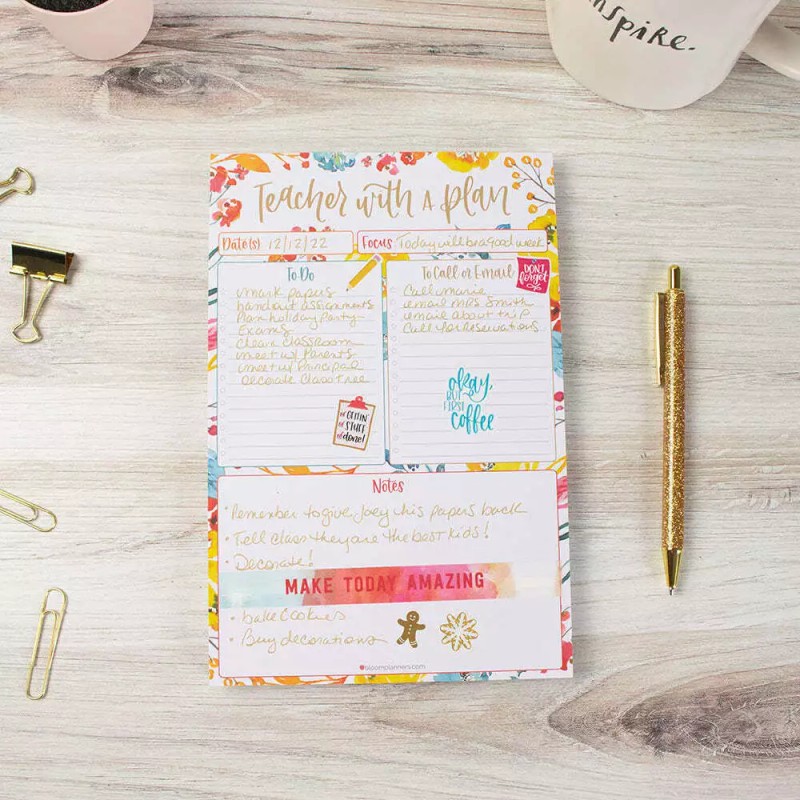 inspire.
Teacher with a plan
Date(s) 12/12/22 Focus Today will be a good week
To Do
mark papers
handout assignments
Plan holiday party
Exams
clean classroom
meet w/ Parents
meet w/ Principal
Decorate Class Tree
GETTIN'
STUFF
done!
To Call or Email
DON'T
forget
Call marie
email MRS Smith
email about trip
Call for reservations
okay,
BUT
FIRST
coffee
Notes
• Remember to give Joey his papers back
• Tell class they are the best kids!
• Decorate!
MAKE TODAY AMAZING
• bake Cookies
• Buy decorations
bloomplanners.com